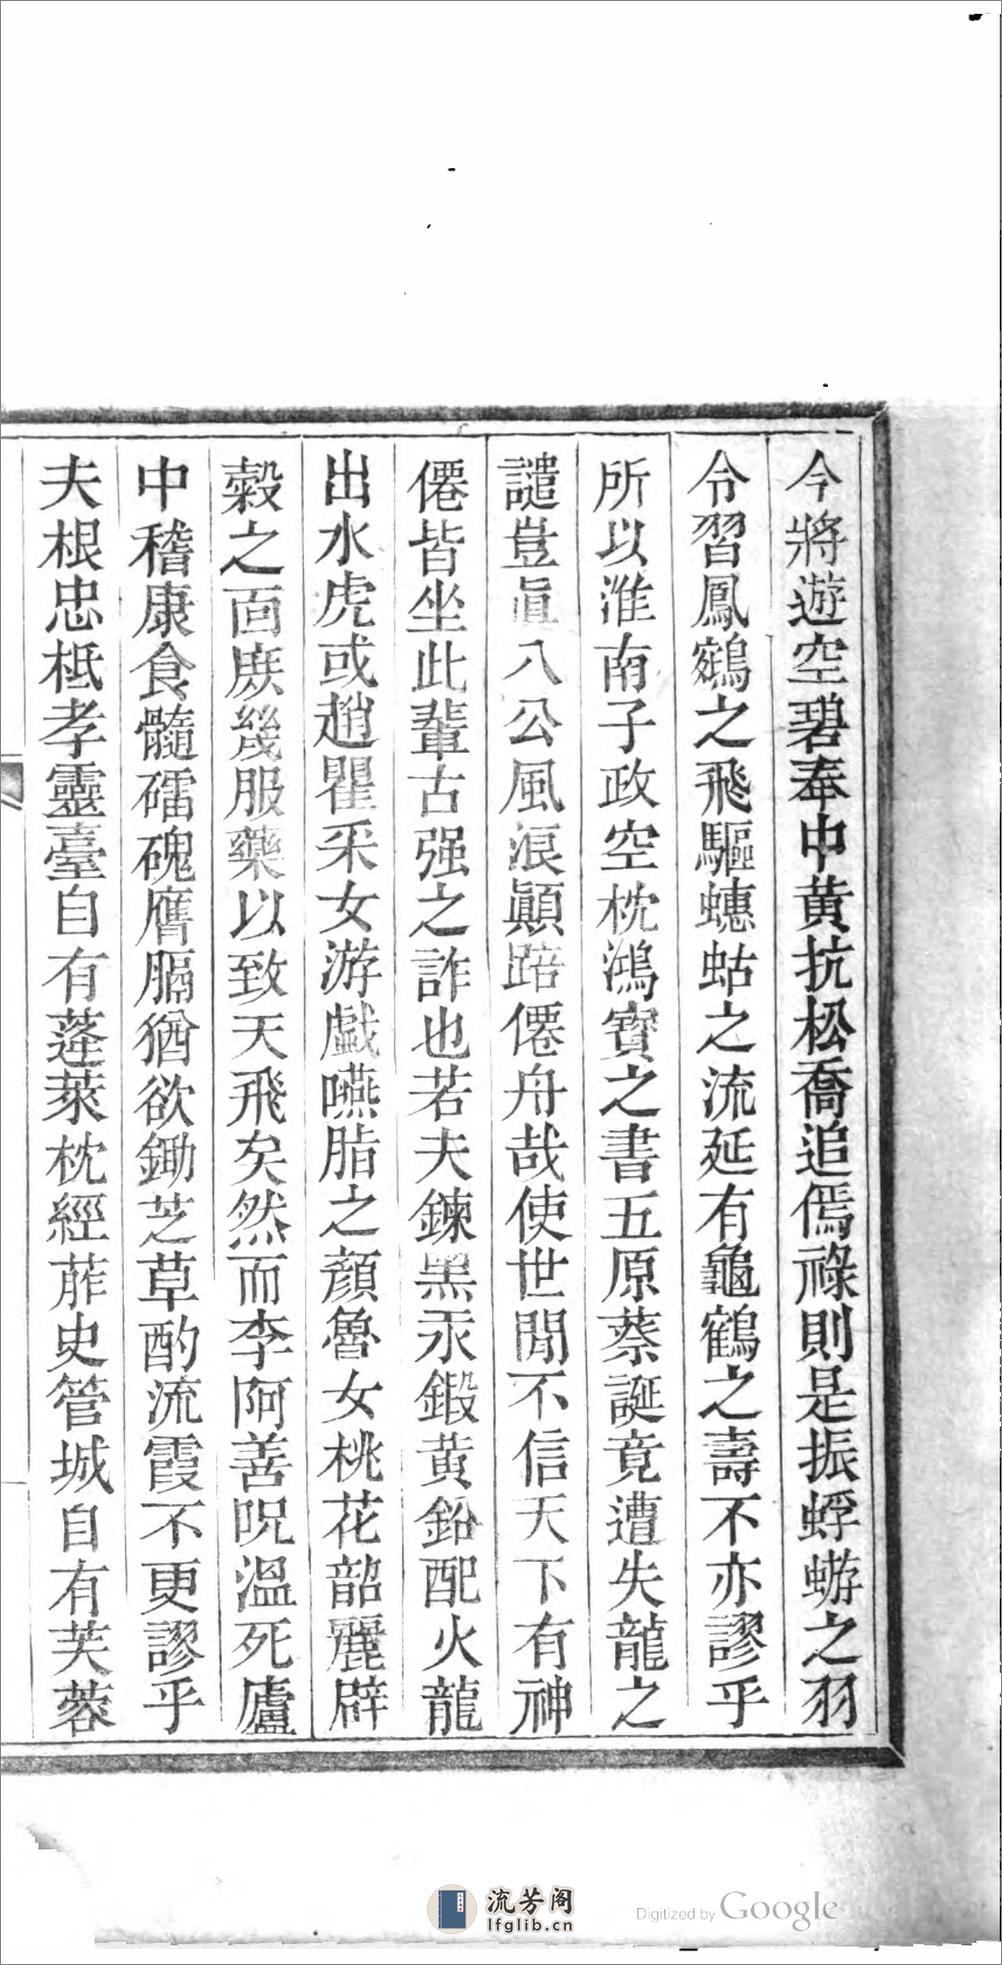 今將遊空碧奉中黃抗松喬追偓祿則是振蜉蝣之羽
令習鳳鵷之飛驅蟪蛄之流延有龜鶴之壽不亦謬乎
所以淮南子政空枕鴻寶之書五原蔡誕竟遭失龍之
譴豈眞八公風浪顚踣僊舟哉使世閒不信天下有神
僊皆坐此輩古强之詐也若夫鍊黑汞鍛黃鉛配火龍
出水虎或趙瞿采女游戲嚥脂之顏魯女桃花韶麗辟
穀之面庶幾服藥以致天飛矣然而李阿善呪溫死廬
中稽康食髓礌磈膺膈猶欲鋤芝草酌流霞不更謬乎
夫根忠柢孝靈臺自有蓬萊枕經葄史管城自有芙蓉
流芳阁
lfglib.cn
Digitized by Google